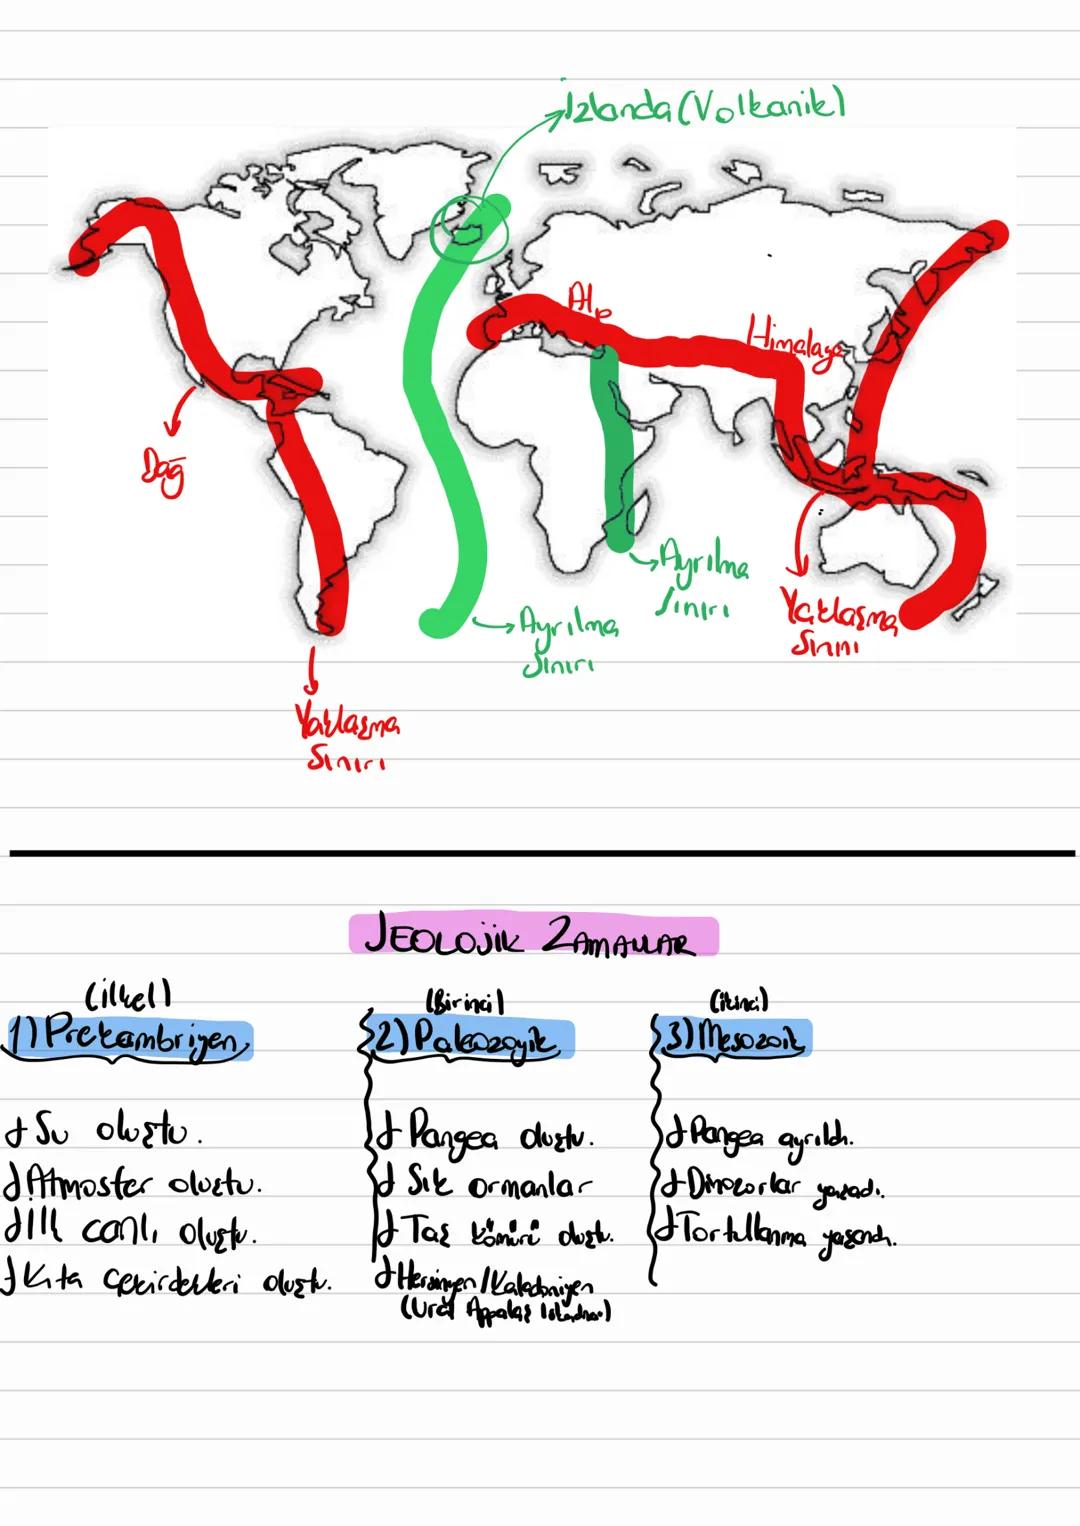 İzlanda (Volkanik)
Alp
Himalaya
Dağ
Ayrılma
Sınırı
Ayrılma
Sınırı
Yaklaşma
Sınırı
Yaklaşma
Sınırı
JEOLOJİK ZAMANLAR
(ilkel)
1) Prekambriyen
Su oluştu.
Atmosfer oluştu.
İlk canlı oluştu.
Kıta çekirdekleri oluştu.
(Birinci)
2) Paleozoyik
Pangea oluştu.
Sık ormanlar
Taş kömürü oluştu.
Hersinyen / Kaledoniyen
(Ural Appalaş
(ikinci)
3) Mesozoik
Pangea ayrıldı.
Dinozorlar yaşadı.
Tortullanma yaşandı.